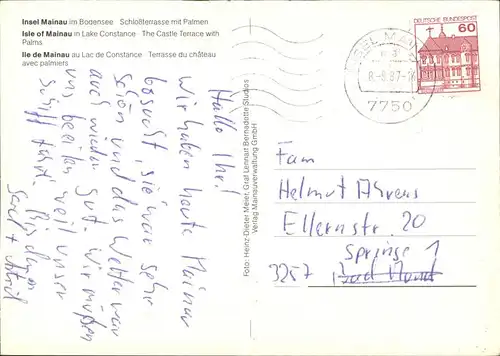 Insel Mainau im Bodensee Schloßterrasse mit Palmen
Isle of Mainau in Lake Constance The Castle Terrace with
Palms
Ile de Mainau au Lac de Constance Terrasse du château
avec palmiers
Hallo Ihr!
Wir haben heute Mainau
besucht, sie war sehr
schön und das Wetter war
auch wieder gut. Wir müßen
uns beeilen weil unser
Schiff fährt. Bis dann
+ Astrid
Foto: Heinz-Dieter Meier, Graf Lennart Bernadotte Studios
Verlag Mainauverwaltung GmbH
INSEL MAINAU
8.-8.87-16
7750
DEUTSCHE BUNDESPOST
60
Fam
Helmut Ahrens
Ellernstr. 20
Springe 1
3257 Bad